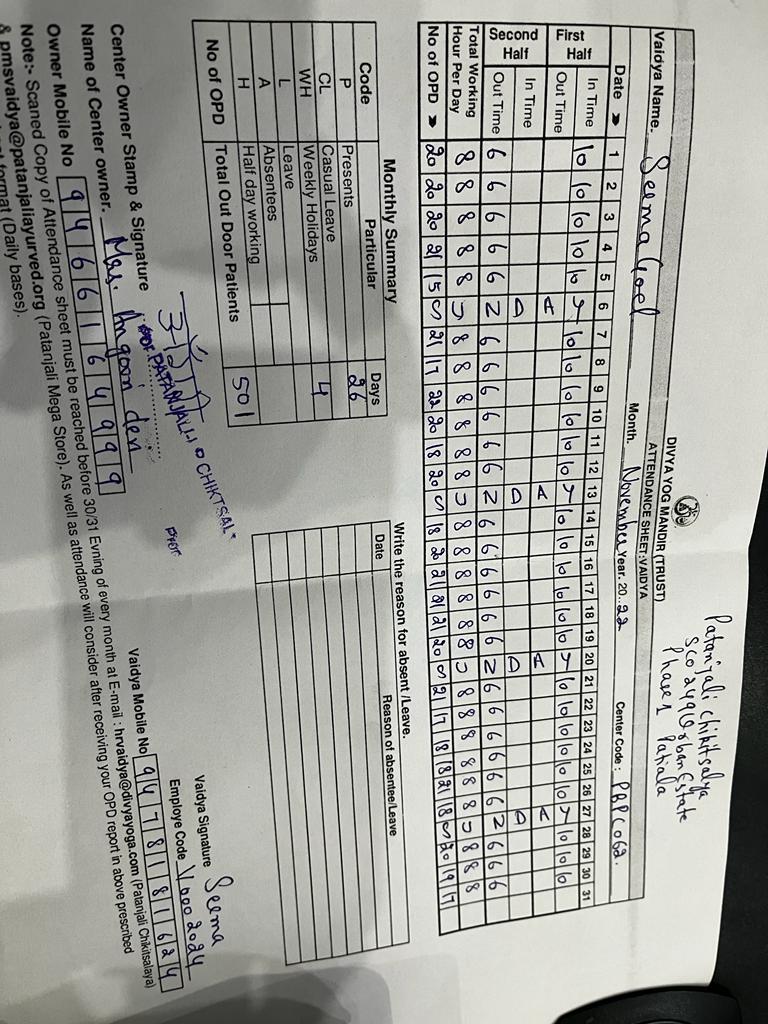 Patanjali Chikitsalya
SCO 249 Urban Estate
Phase 1 Patiala
DIVYA YOG MANDIR (TRUST)
ATTENDANCE SHEET:VAIDYA
Vaidya Name. Seema Goel Month. November Year. 20..22 Center Code : PBPC062.
Date 1 2 3 4 5 6 7 8 9 10 11 12 13 14 15 16 17 18 19 20 21 22 23 24 25 26 27 28 29 30 31
First Half In Time 10 10 10 10 10 10 10 10 10 10 10 10 10 10 10 10 10 10 10 10 10 10 10 10 10 10
Out Time
Second Half In Time
Out Time 6 6 6 6 6 6 6 6 6 6 6 6 6 6 6 6 6 6 6 6 6 6 6 6 6 6
SUNDAY SUNDAY SUNDAY SUNDAY
Total Working Hour Per Day 8 8 8 8 8 8 8 8 8 8 8 8 8 8 8 8 8 8 8 8 8 8 8 8 8 8
No of OPD 20 20 20 21 15 21 17 22 20 18 20 18 20 21 21 21 20 21 17 18 18 21 18 20 19 17
Monthly Summary
Code Particular Days
P Presents 26
CL Casual Leave
WH Weekly Holidays 4
L Leave
A Absentees
H Half day working
No of OPD Total Out Door Patients 501
Write the reason for absent /Leave.
Date Reason of absentee/Leave
For PATANJALI CHIKTSAL
Prop
Center Owner Stamp & Signature
Name of Center owner. Mrs. Angoori devi
Owner Mobile No 9466164999
Vaidya Signature Seema
Employe Code V0002024
Vaidya Mobile No 9478181624
Note:- Scaned Copy of Attendance sheet must be reached before 30/31 Evning of every month at E-mail : hrvaidya@divyayoga.com (Patanjali Chikitsalaya)
& pmsvaidya@patanjaliayurved.org (Patanjali Mega Store). As well as attendance will consider after receiving your OPD report in above prescribed
format (Daily bases).